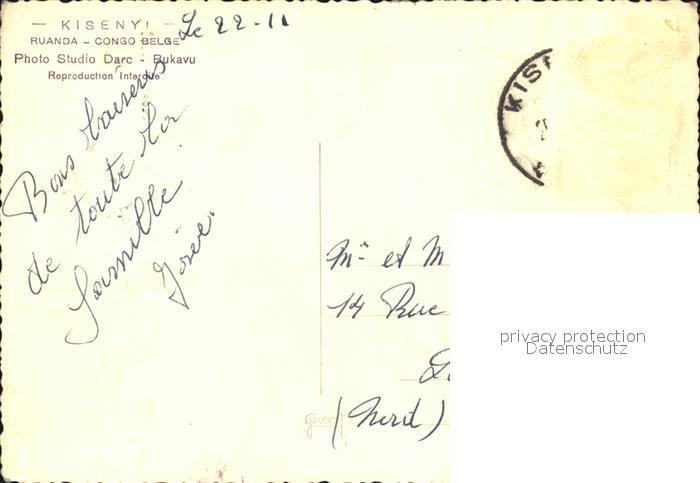 — KISENYI —
RUANDA - CONGO BELGE
Photo Studio Darc - Bukavu
Reproduction Interdite
Le 22-11
Bons baisers
de toute la
famille
KIS
Mr et M
14 Rue
(Nord)
Gevaert
privacy protection
Datenschutz